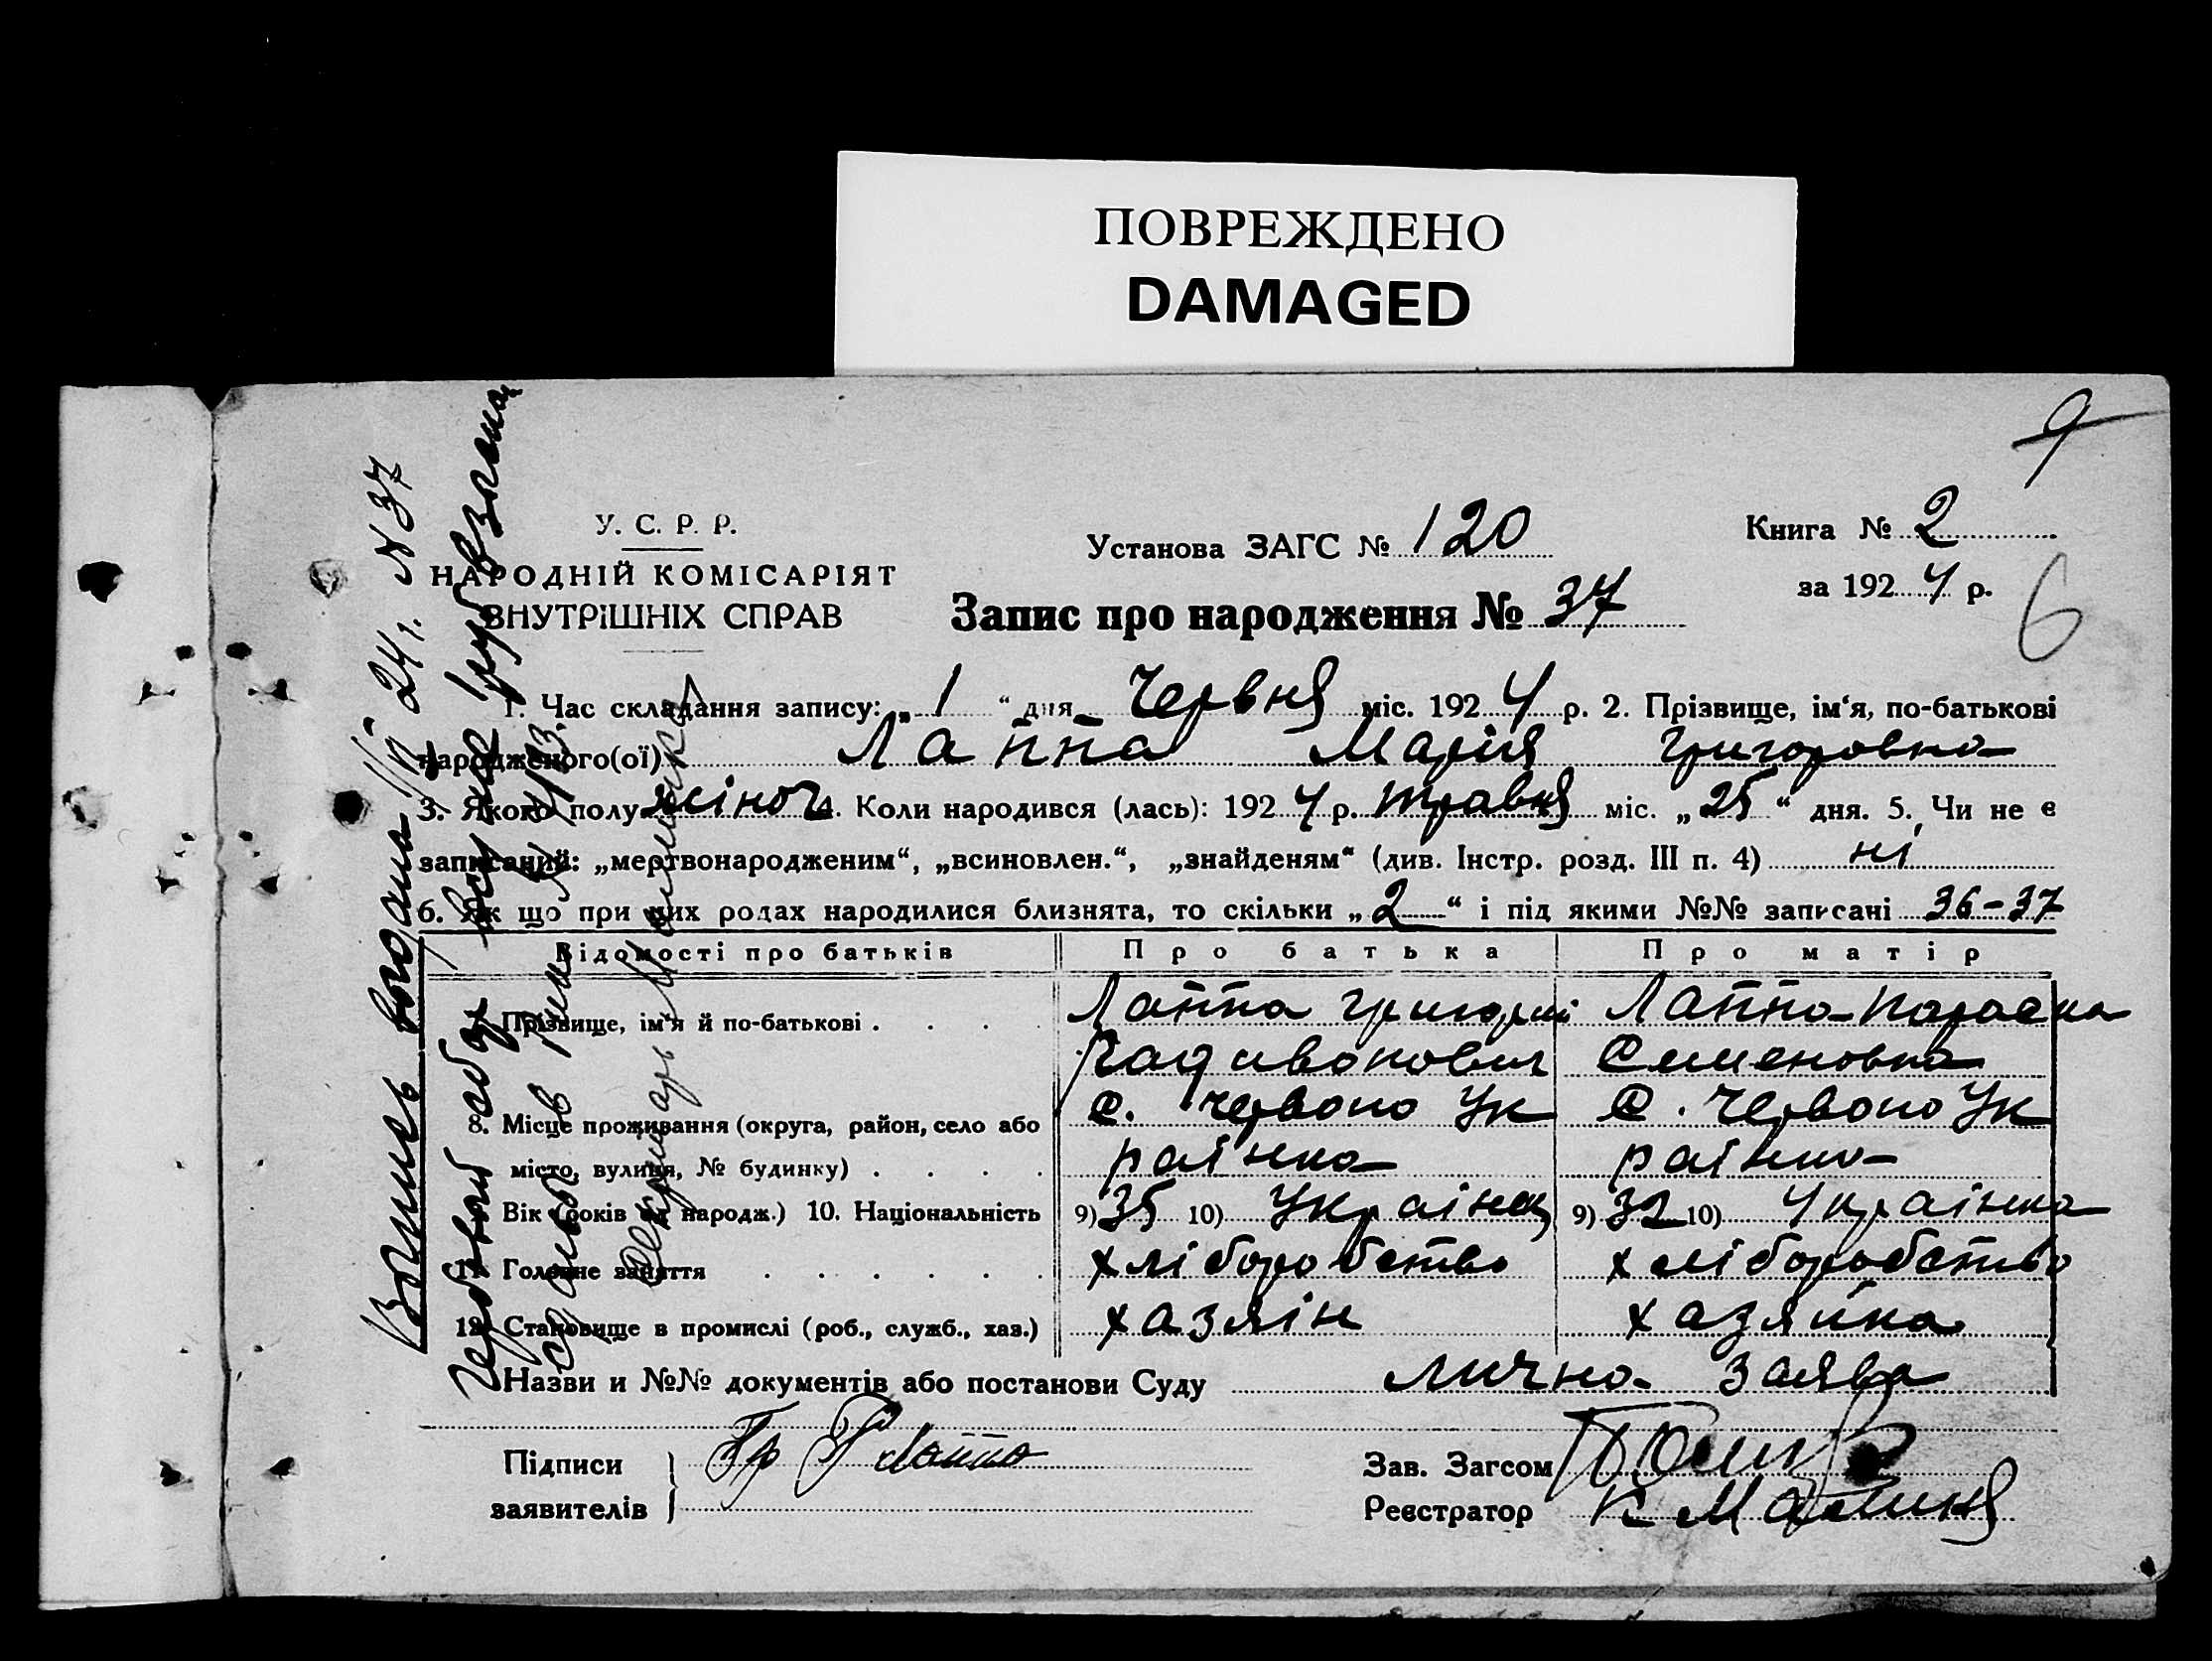 ПОВРЕЖДЕНО
DAMAGED
9
У. С. Р. Р.
НАРОДНІЙ КОМІСАРІЯТ
ВНУТРІШНІХ СПРАВ
Установа ЗАГС № 120
Книга № 2
за 1924 р.
6
Запис про народження № 37
1. Час складання запису: „1“ дня Червня міс. 1924 р. 2. Прізвище, ім‘я, по-батькові
народженого(ої) Лаппа Марія Григоровна
3. Якого полу жіноч 4. Коли народився (лась): 1924 р. травня міс. „25“ дня. 5. Чи не є
записаний: „мертвонародженим“, „всиновлен.“, „знайденям“ (див. Інстр. розд. III п. 4) ні
6. Як що при цих родах народилися близнята, то скільки „2“ і під якими №№ записані 36-37
Відомості про батьків Про батька Про матір
Прізвище, ім‘я й по-батькові . . . . Лаппа Григорий Лаппа Параска
Семеновна
8. Місце проживання (округа, район, село або С. Червоно Ук С. Червоно Ук
місто, вулиця, № будинку) . . . . раінка раінка
Вік (років од народж.) 10. Національність 9) 35 10) Украінец 9) 32 10) Украінка
11. Головне заняття . . . . . . хліборобство хліборобство
12. Становище в промислі (роб., служб., хаз.) хазяін хазяйка
Назви и №№ документів або постанови Суду лична заява
Підписи Гр Г Лаппа Зав. Загсом
заявителів Реєстратор К Малиня
24 г. N 37